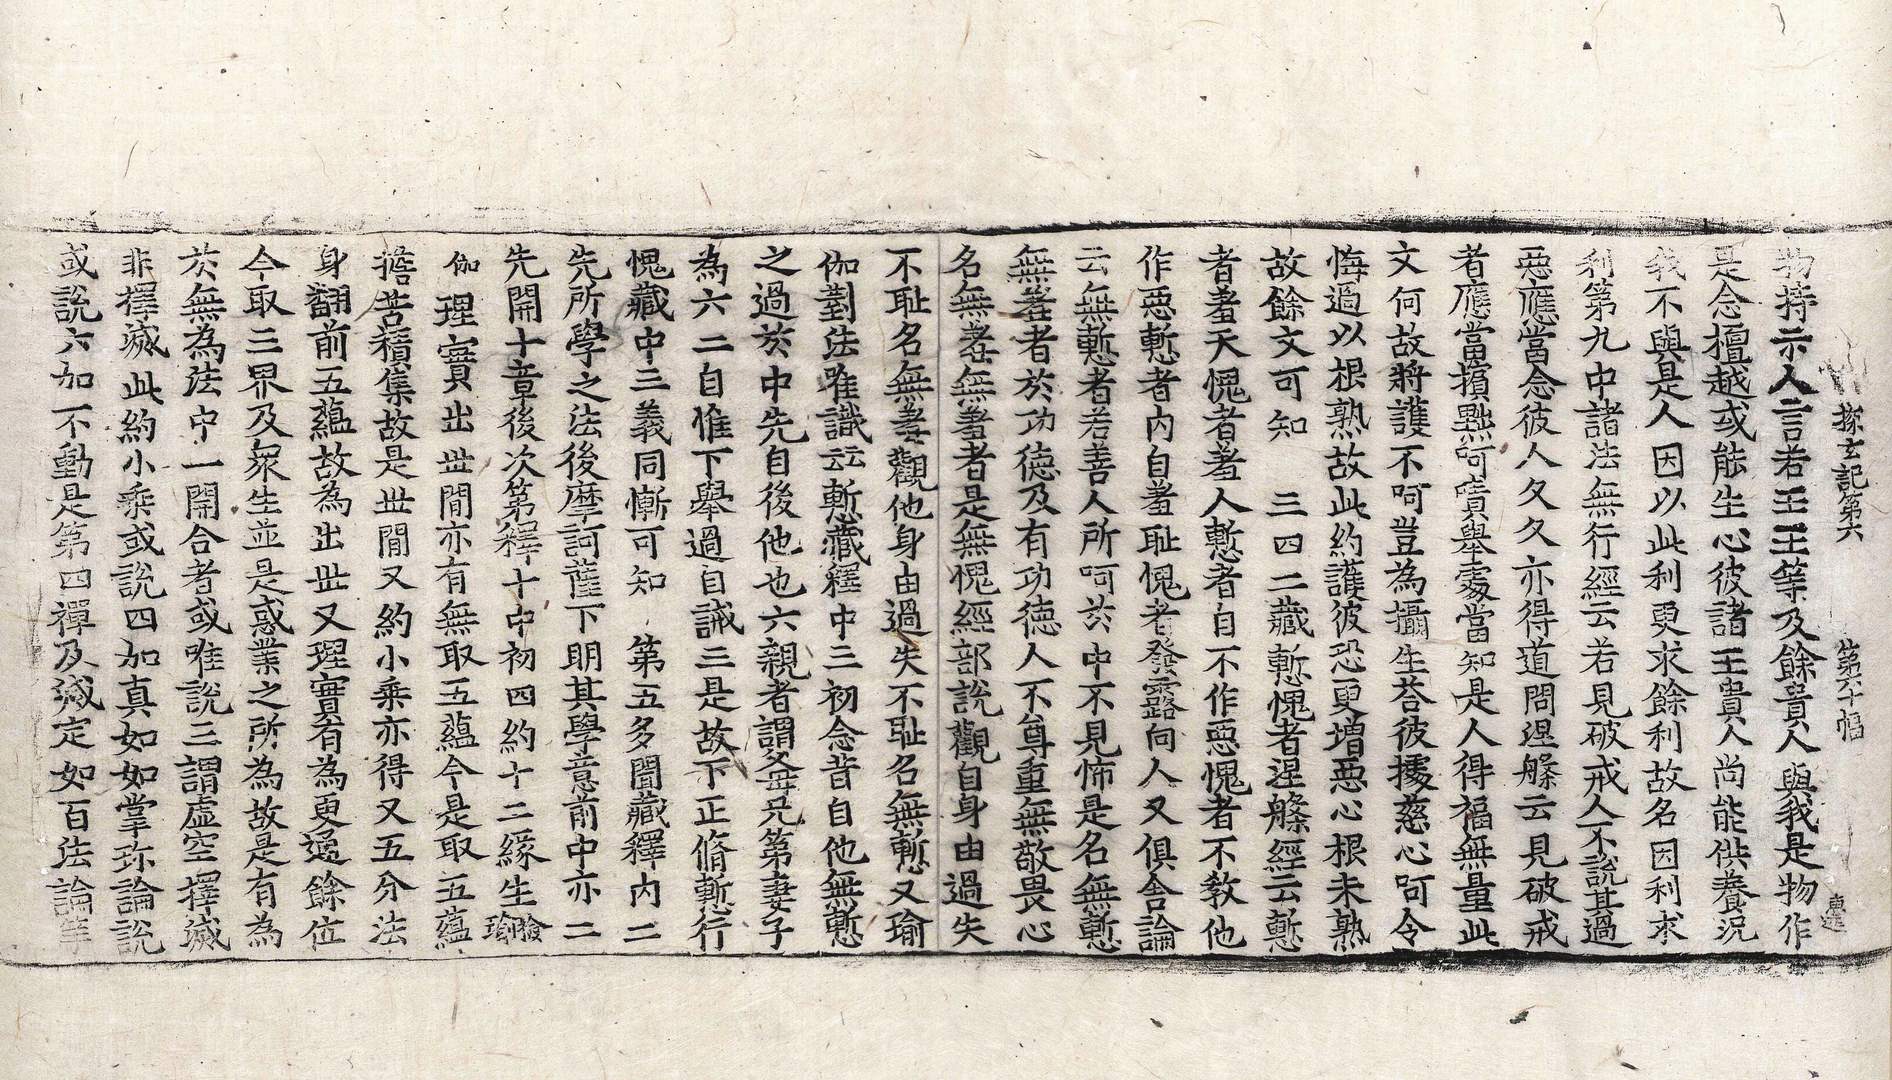 探玄記第六　第六十幅
物持示人言若王王等及餘貴人與我是物作
是念檀越或能生心彼諸王貴人尚能供養況
我不與是人因以此利更求餘利故名因利求
利第九中諸法無行經云若見破戒人不說其過
惡應當念彼人久久亦得道問涅槃云見破戒
者應當擯黜呵嘖舉處當知是人得福無量此
文何故將護不呵豈為攝生荅彼據慈心呵令
悔過以根熟故此約護彼恐更增惡心根未熟
故餘文可知　三四二藏慙愧者涅槃經云慙
者羞天愧者羞人慙者自不作惡愧者不教他
作惡慙者內自羞耻愧者發露向人又俱舍論
云無慙者若善人所呵於中不見怖是名無慙
無羞者於功德及有功德人不尊重無敬畏心
名無羞無羞者是無愧經部說觀自身由過失
不耻名無羞觀他身由過失不耻名無慙又瑜
伽對法唯識云云慙藏釋中三初念昔自他無慙
之過於中先自後他也六親者謂父母兄弟妻子
為六二自惟下舉過自誡三是故下正脩慙行
愧藏中三義同慚可知　第五多聞藏釋內二
先所學之法後摩訶薩下明其學意前中亦二
先開十章後次第釋十中初四約十二緣生瑜撿
伽　理實出世間亦有無取五蘊今是取五蘊
擔苦積集故是世間又約小乘亦得又五分法
身翻前五蘊故為出世又理實有為更通餘位
今取三界及衆生並是惑業之所為故是有為
於無為法中一開合者或唯說三謂虛空擇滅
非擇滅此約小乘或說四加真如如掌珍論說
或說六加不動是第四禪及滅定如百法論等